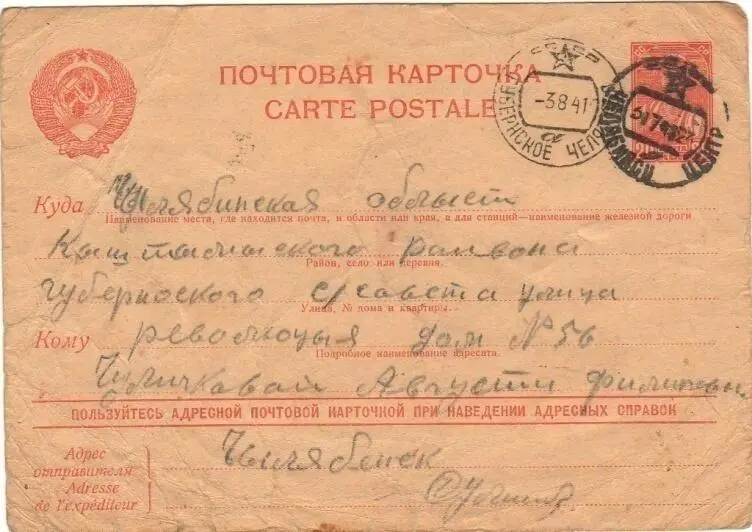 ПОЧТОВАЯ КАРТОЧКА
CARTE POSTALE
СССР
ГУБЕРНСКОЕ ЧЕЛЯБ
-3 8 41
ЧЕЛЯБИНСК ЦЕНТР
31 7 41
Куда Челябинская область
Наименование места, где находится почта, и области или края, а для станций—наименование железной дороги
раивона
Район, село или деревня.
губернского с/савета улица
Улица, № дома и квартиры.
Кому революция дом № 56
Подробное наименование адресата.
Августи
ПОЛЬЗУЙТЕСЬ АДРЕСНОЙ ПОЧТОВОЙ КАРТОЧКОЙ ПРИ НАВЕДЕНИИ АДРЕСНЫХ СПРАВОК
Адрес
отправителя
Adresse
de l'expéditeur
Чилябенск